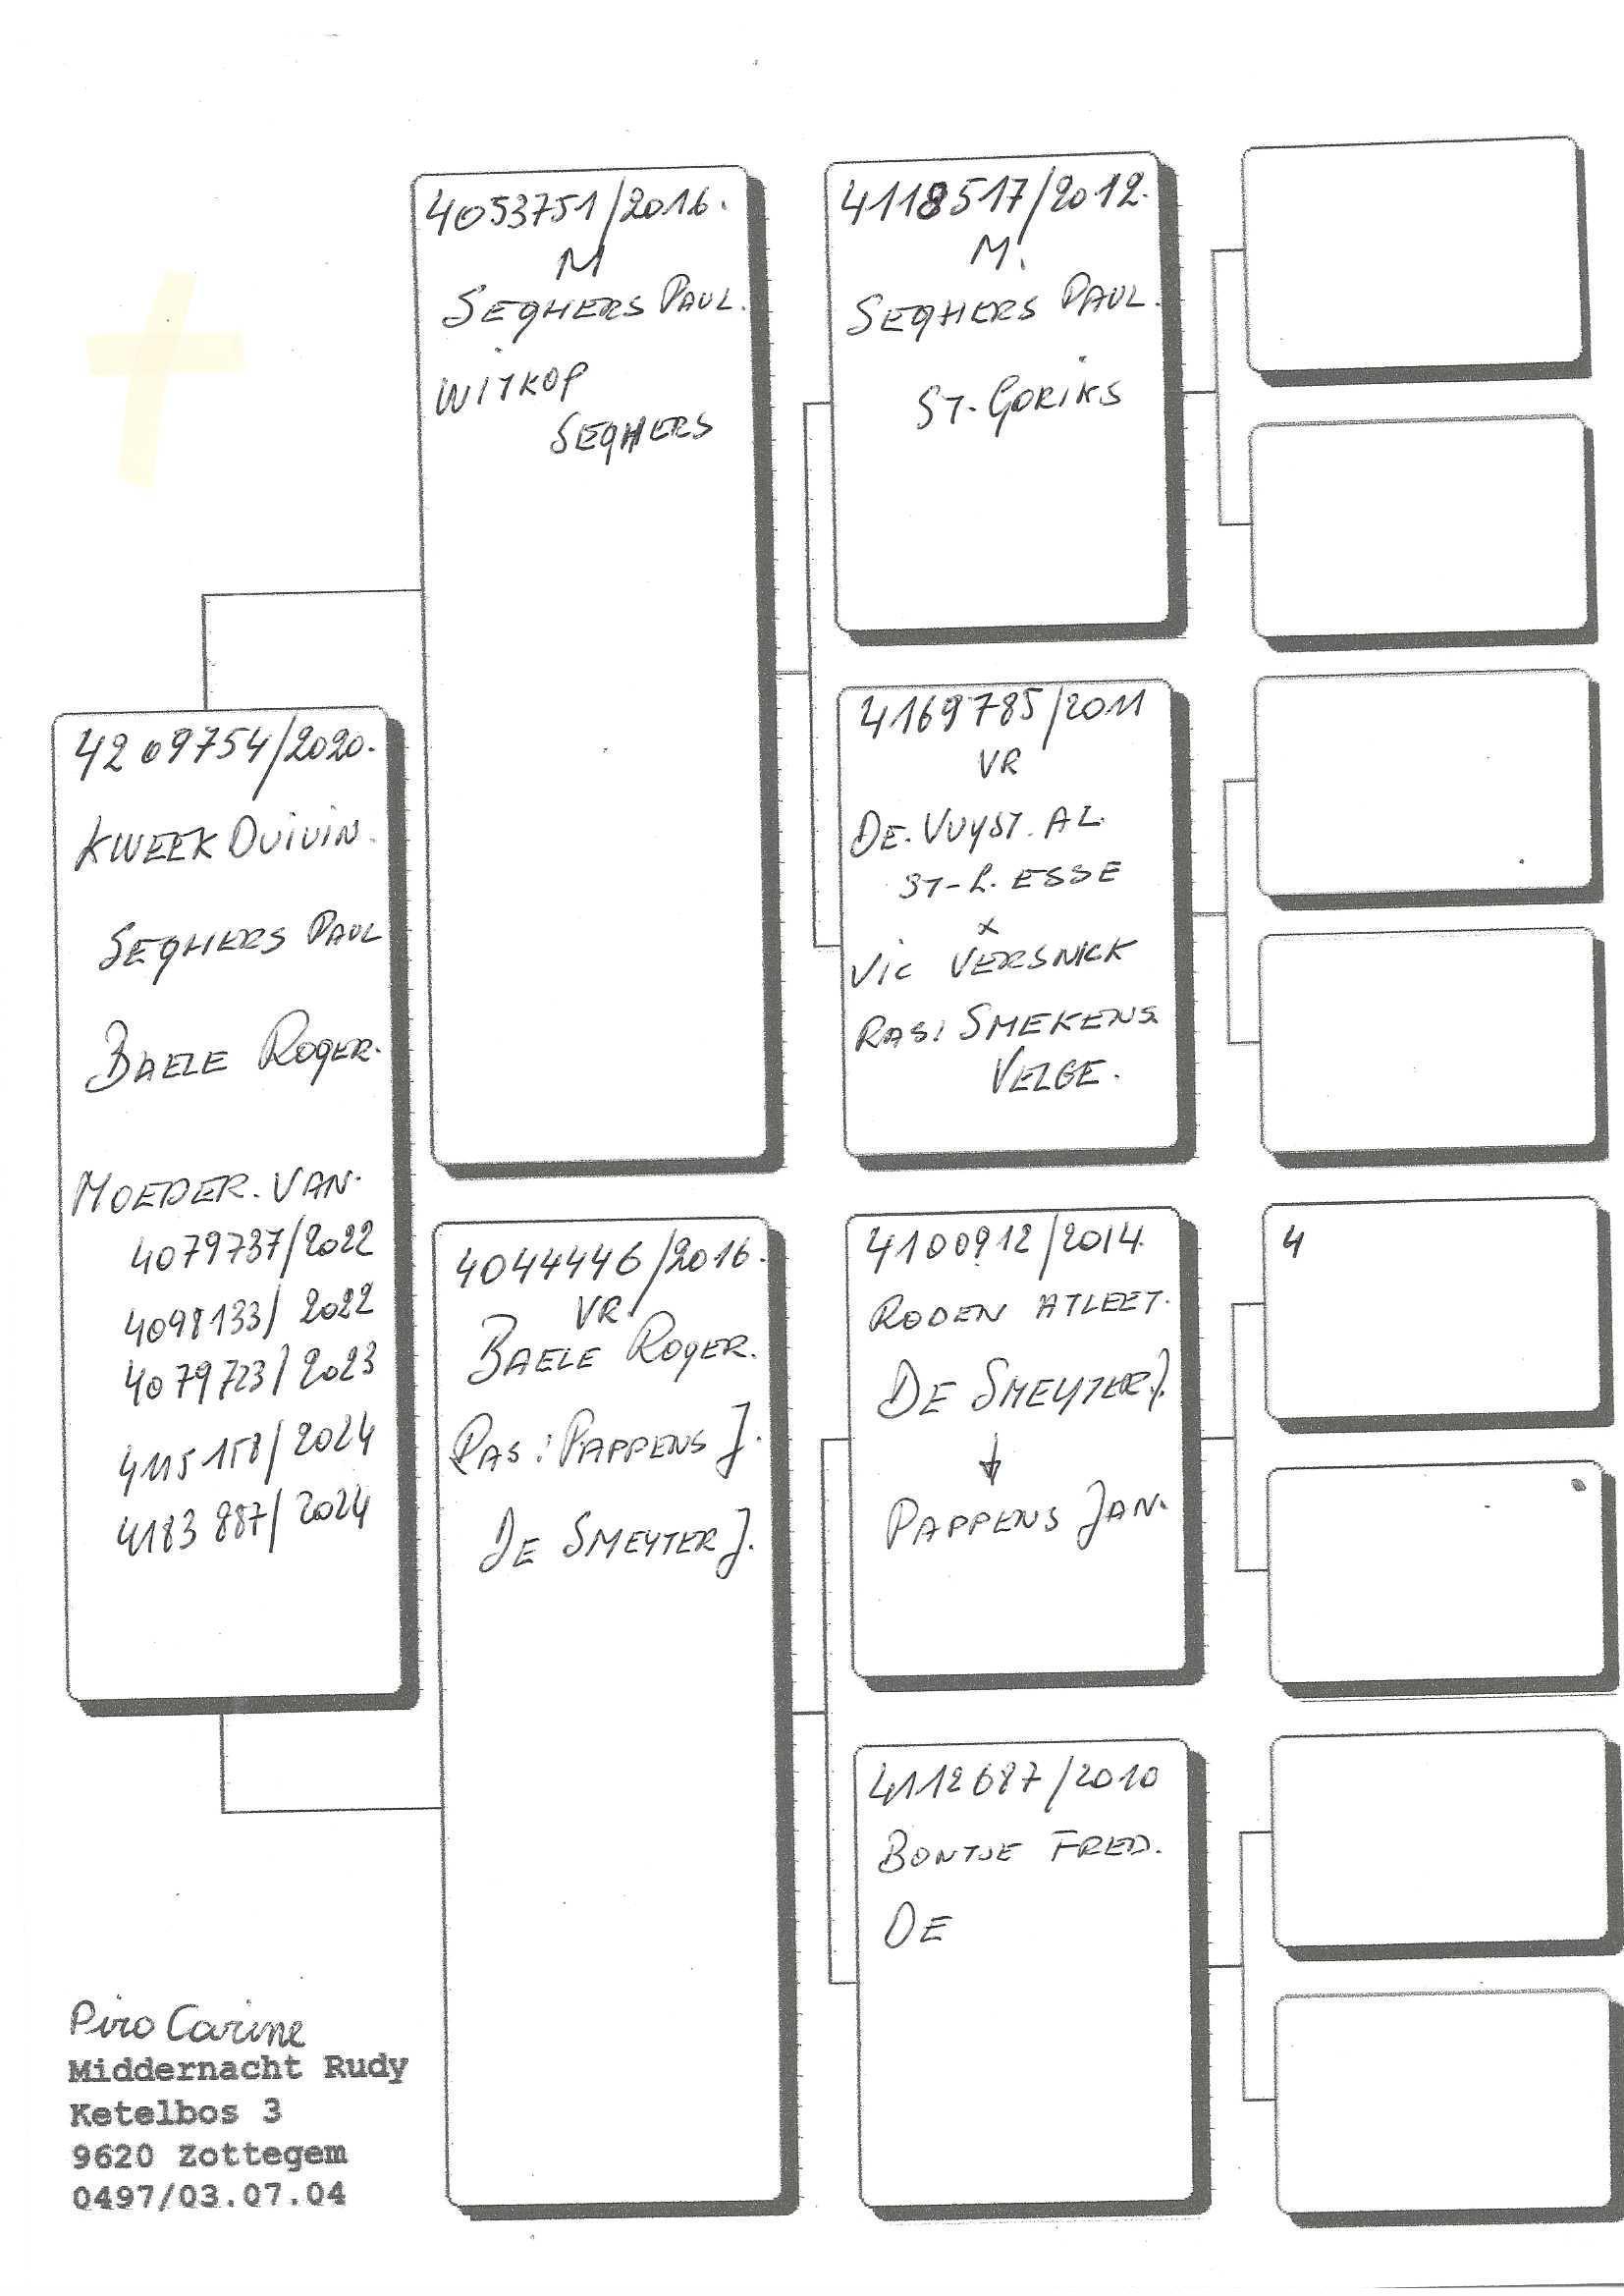 4209754/2020.
KWEEK DUIVIN.
SEGHERS PAUL
BAELE ROGER.
MOEDER. VAN.
4079737/2022
4098133/2022
4079723/2023
4115158/2024
4183887/2024
4053751/2016.
M
SEGHERS PAUL.
WITKOP
SEGHERS
4044446/2016.
VR.
BAELE ROGER.
RAS: PAPPENS J.
DE SMEYTER J.
4118517/2012.
M.
SEGHERS PAUL.
ST-GORIKS
4169785/2011
VR
DE. VUYST. AL.
ST-L. ESSE
x
VIC VERSNICK
RAS: SMEKENS
VELGE.
4100912/2014.
RODEN ATLEET.
DE SMEYTER J.
↓
PAPPENS JAN.
4112687/2010
BONTJE FRED.
DE
4
Piro Carine
Middernacht Rudy
Ketelbos 3
9620 Zottegem
0497/03.07.04